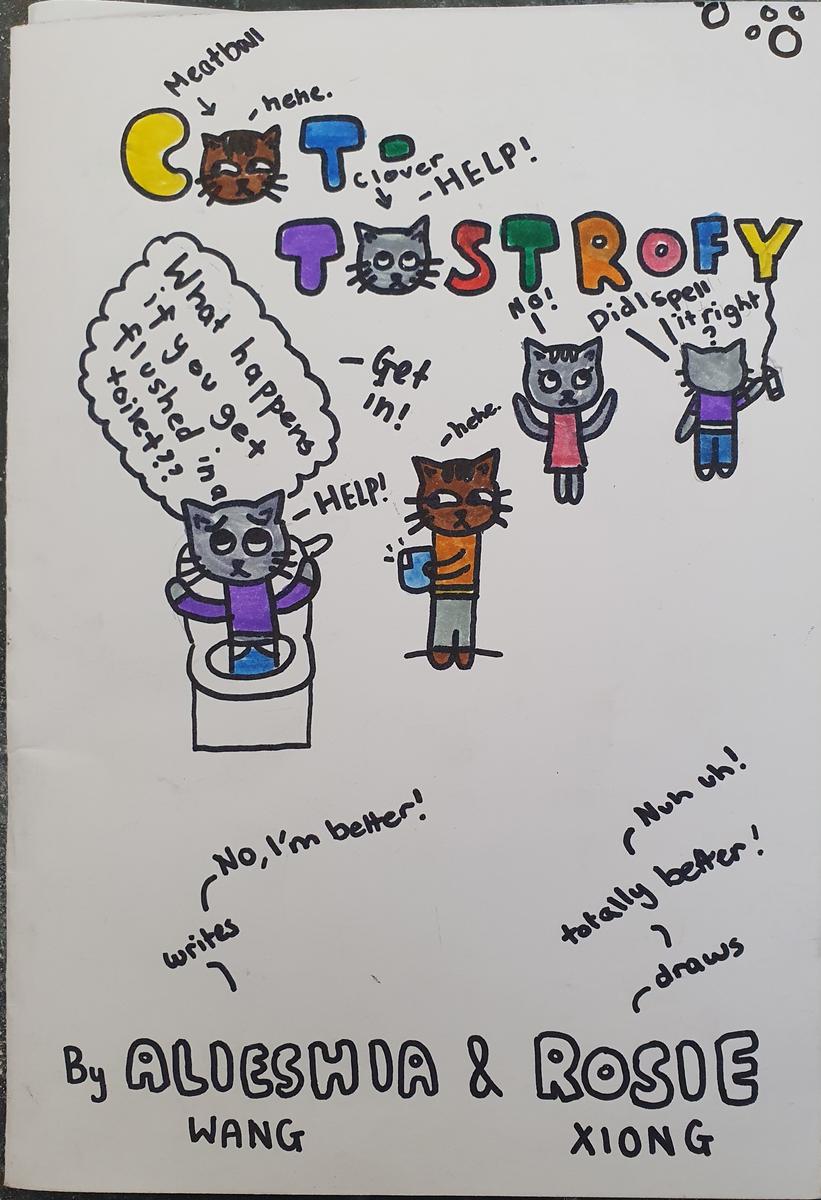 Meatball
- hehe.
C T-
Clover
- HELP!
T STROFY
What happens
if you get
flushed in a
toilet??
- Get
in!
No!
Did I spell
it right
?
- hehe.
- HELP!
No, I'm better!
writes
Nuh uh!
totally better!
draws
By ALIESHIA & ROSIE
WANG XIONG